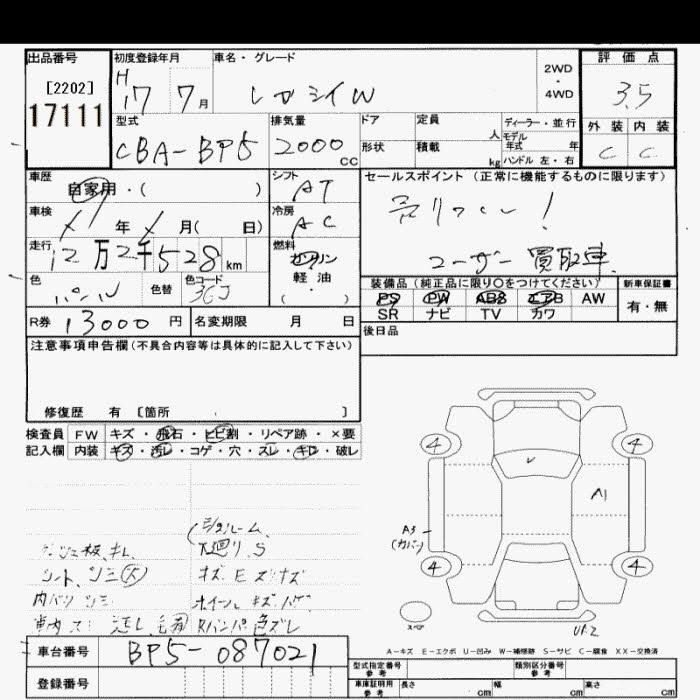 出品番号 初度登録年月 車名・グレード 2WD・4WD 評価点
[2202]
17111
H17 7月 レガシイW 3.5
型式 排気量 ドア 定員 人 ディーラー・並行
CBA-BP5 2000cc 形状 積載 kg モデル年式 年
ハンドル 左・右
外装 内装
C C
車歴 シフト セールスポイント(正常に機能するものに限ります)
自家用・( ) AT
車検 年 月( 日) 冷房 AC
売りつくし!
ユーザー買取車
走行 12万2千528km 燃料 ガソリン
軽・油
・( )
色 パール 色替 色コード 36J
装備品(純正品に限り○をつけてください) 新車保証書
PS PW ABS エアB AW 有・無
SR ナビ TV カワ
R券 13000円 名変期限 月 日
後日品
注意事項申告欄(不具合内容等は具体的に記入して下さい)
修復歴 有 [箇所 ]
検査員 FW キズ・飛石・ヒビ割・リペア跡・×要
記入欄 内装 キズ・汚レ・コゲ・穴・スレ・キロ・破レ
4 4
A1
A3
(カバー)
4 4
スペア
U2
(ミラールーム、
下廻り、S
キズEスリキズ
シート、シミ(大)
内バリ シミ ホイールキズハゲ
車内 汚レ Rバンパ色ズレ
A-キズ E-エクボ U-凹み W-補修跡 S-サビ C-腐食 XX-交換済
車台番号 BP5-087021
登録番号
型式指定番号 参考 類別区分番号 参考
車庫証明用 参考 長さ cm 幅 cm 高さ cm